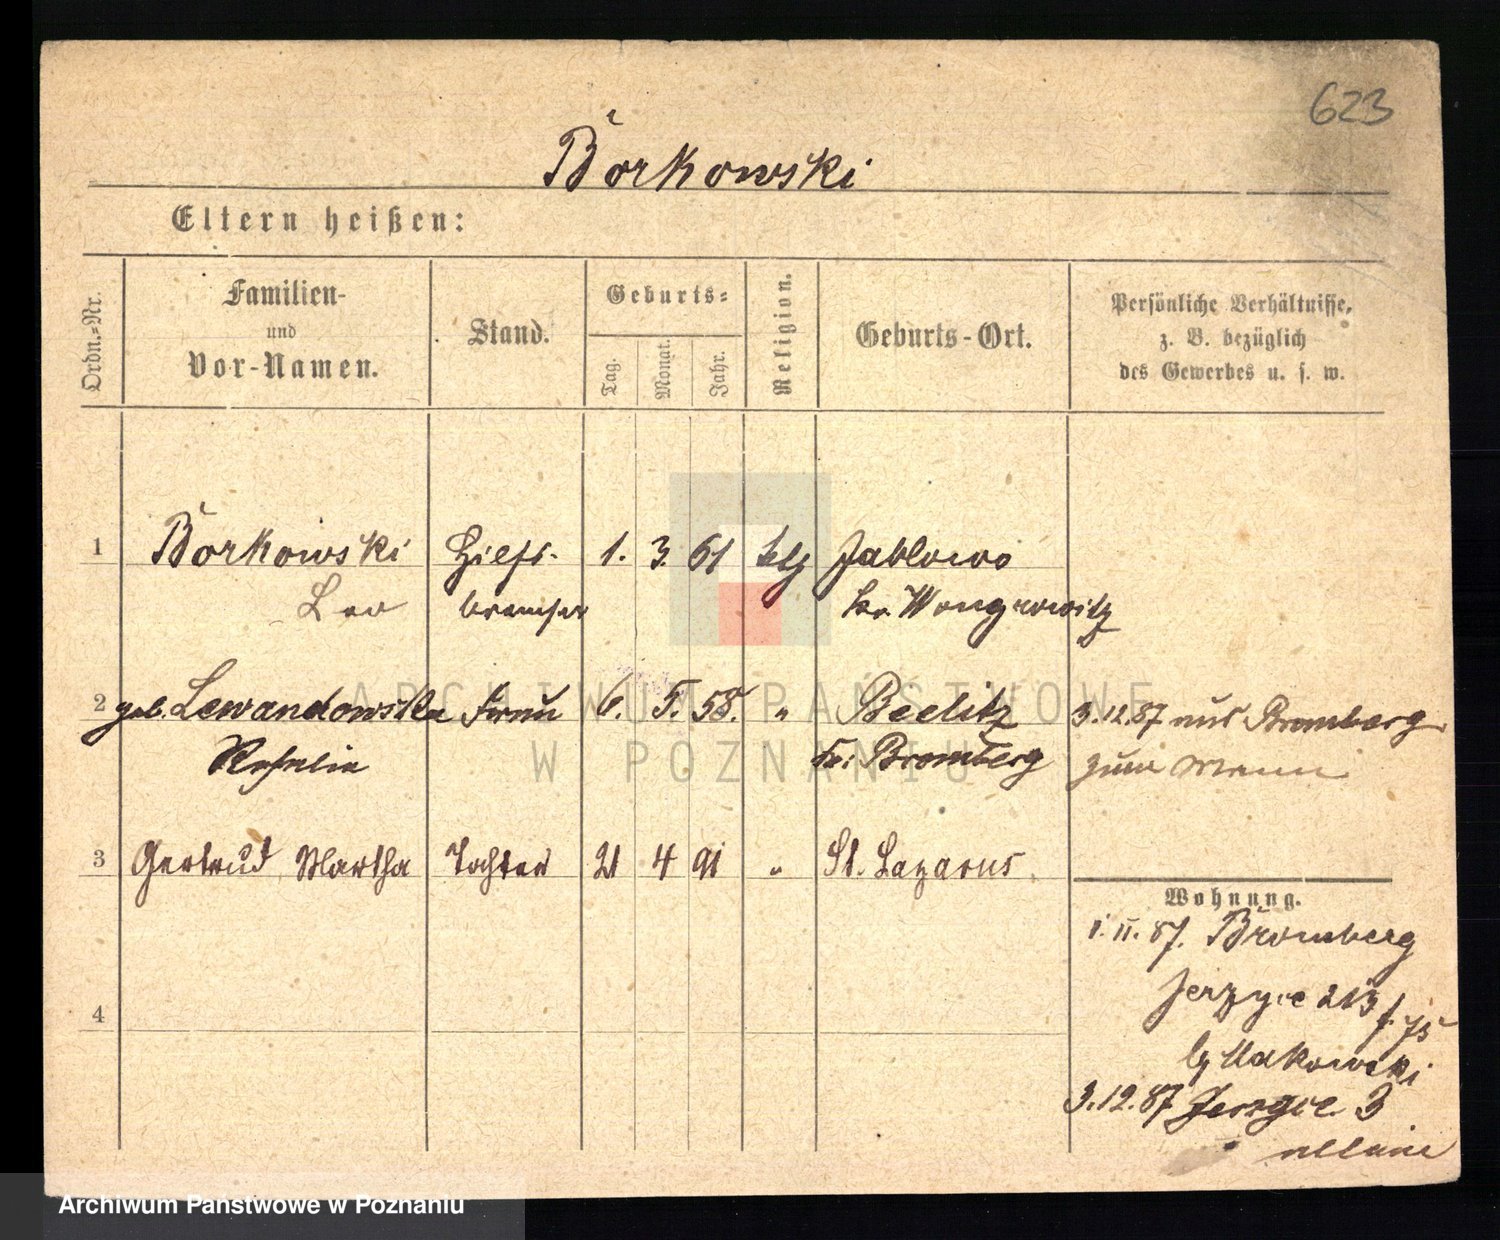 623
Borkowski
Eltern heißen:
Ordn.=Nr.
Familien-
und
Vor-Namen.
Stand.
Geburts=
Tag.
Monat.
Jahr.
Religion.
Geburts-Ort.
Persönliche Verhältnisse,
z. B. bezüglich
des Gewerbes u. s. w.
1 Borkowski Hilfs- 1. 3. 61 klj Jablowo
Leo bremser Kr. Wongrowitz
2 geb. Lewandowska Frau 6. 5. 58. " Beelitz 3.12.87 aus Bromberg
Rosalie Kr: Bromberg zum Mann
3 Gertrud Martha Tochter 21 4 91 " St. Lazarus
Wohnung.
1. 11. 87. Bromberg
Jerzyce 213
4
b/ Makowski
3.12.87 Jerzyce 3
alleine
ARCHIWUM PAŃSTWOWE
W POZNANIU
Archiwum Państwowe w Poznaniu